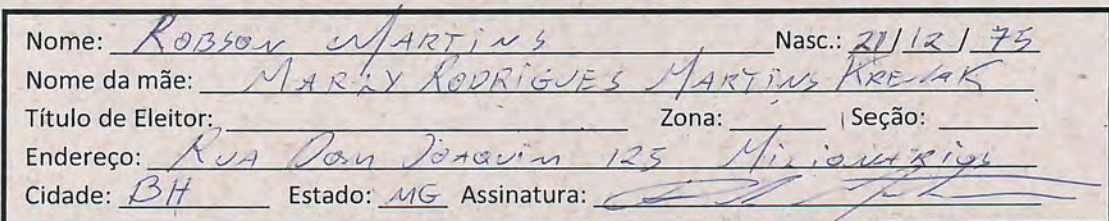 Nome: ROBSON MARTINS Nasc.: 21/12/75
Nome da mãe: MARLY RODRIGUES MARTINS KRENAK
Título de Eleitor: Zona: Seção:
Endereço: RUA Dom JOAQUIM 125
Cidade: BH Estado: MG Assinatura: